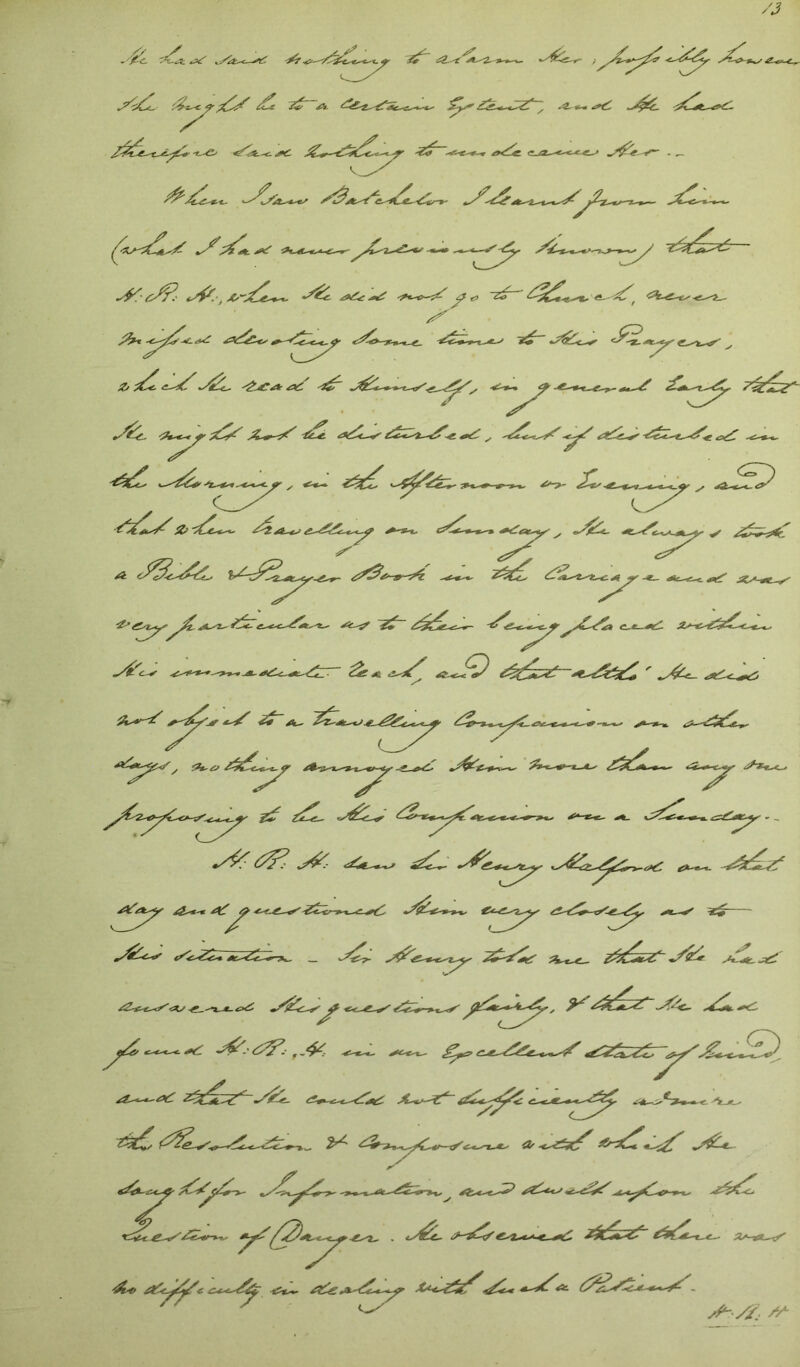 13
He had said nothing to alarm Her, possibly however
He might be too Cautious I
He doubt, and He had
therefore said nothing to undeceive Her. -
When I saw Batchelor I learned from him
(what I had never previously known) that
H: R: H:, when He did not go to Church, never
neglected devoting some time to His Prayers,
which He read to Himself, in general early that
He might not be disturbed, but if disturbed in
the Morning, in the Afternoon or Evening, and
that when travelling on Sunday, He always took
a Bible & Prayer Book in the Carriage and was
very particular as to their being placed within
His immediate reach, and that altho' He did
not object to a travelling Companion on other
days, nothing annoyed Him more than any one
proposing to be His Companion on a Sunday. -
H: R: H: saw Sir Henry Halford on that
day and questioned Him very closely as to
His situation - Sir Henry told me that He had
answered His questions fairly, & that He had
found H: R: H: in an Excellent State of Mind,
and that He could not sufficiently admire
the Resolution & Composure with which He
sought for Information, and dwelt upon the
question of Danger. He observed that there was
no difficulty in dealing with such a Patient.